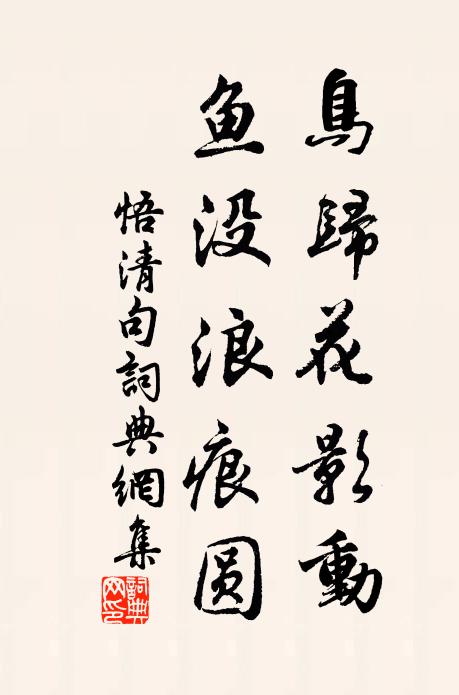 鳥歸花影動
魚没浪痕圆
悟清句詞典網集
詞典网印